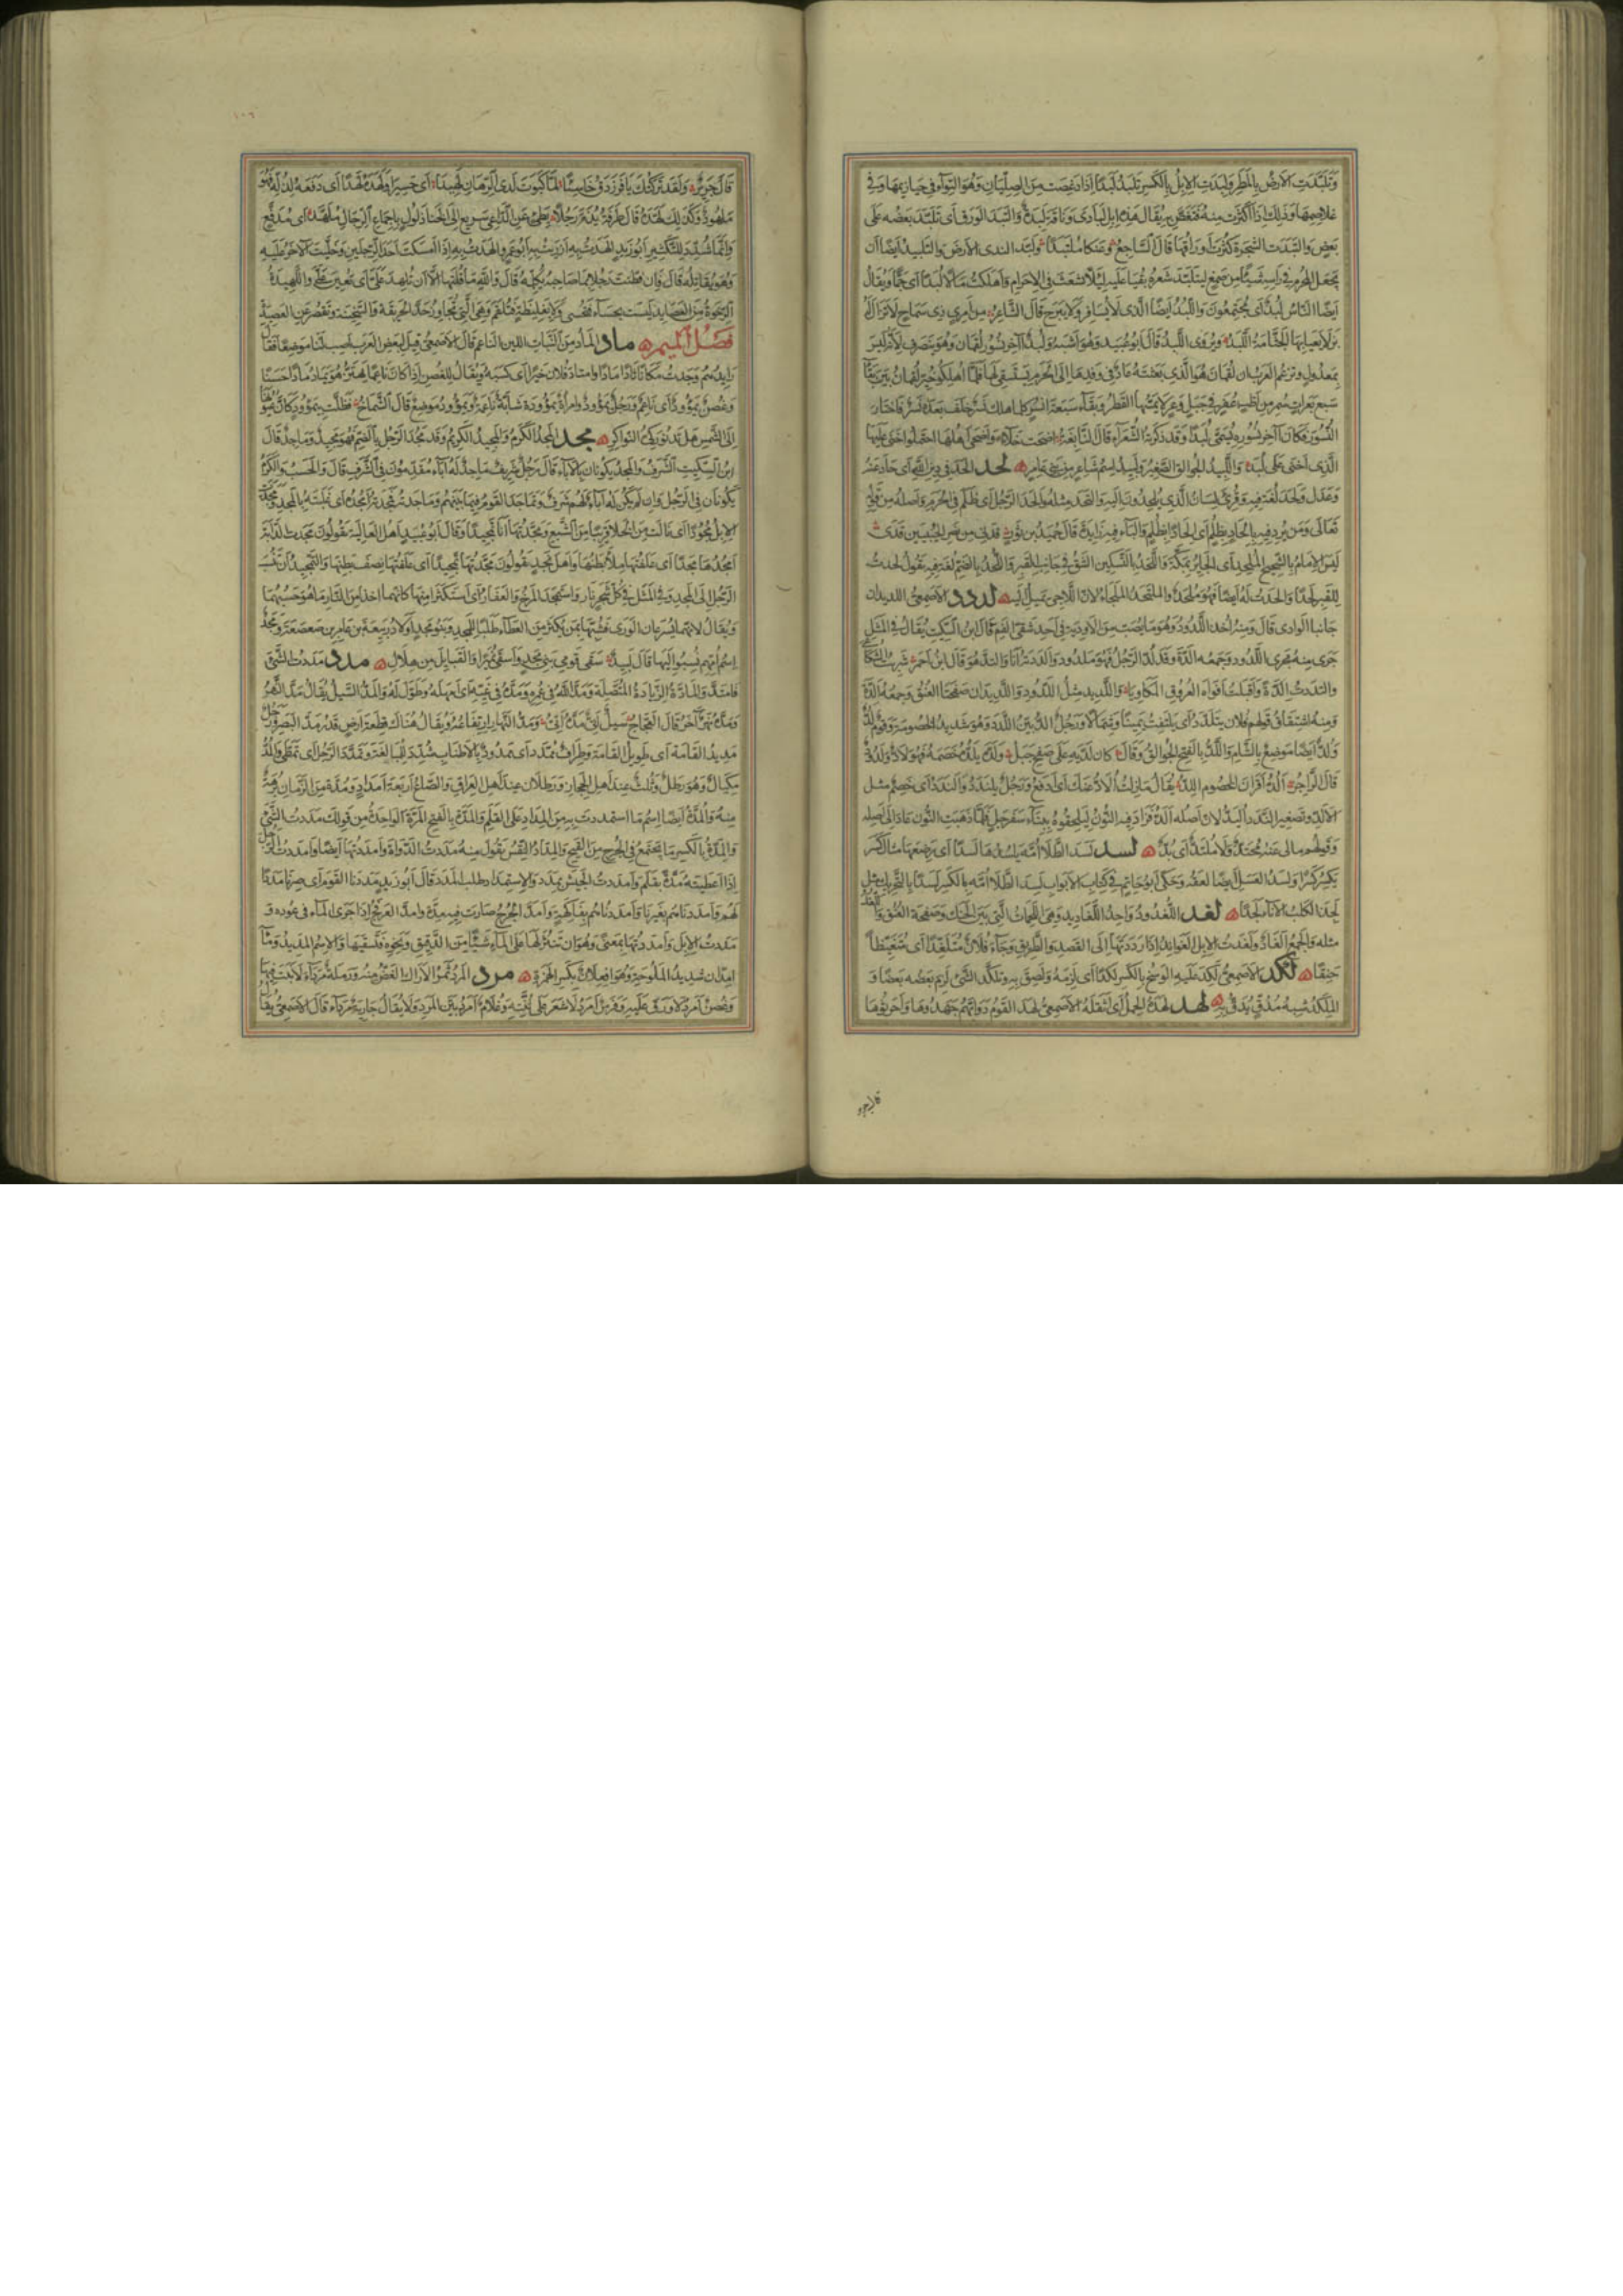 وتلبدت الارض بالمطر ولبدت الابل بالكسر تلبد لبدا اذا دغصت من الصليان وهو التواء في حيازيمها وفي
غلاصمها وذلك اذا اكثرت منه فتغص به يقال هذه ابل لبادى وناقة لبدة والتبد الورق اى تلبد بعضه على
بعض والتبدت الشجرة كثرت وراقها قال الساجع وعنكثا ملتبدا ولبد الندى الارض والتلبيد ايضا ان
يجعل المحرم في راسه شيئا من صمغ ليتلبد شعره بقيا عليه ليلا يشعث في الاحرام واهلكت مالا لبدا اى جما ويقال
ايضا الناس لبد اى مجتمعون واللبد ايضا الذى لا يسافر ولا يبرح قال الشاعر من امرئ ذى سماح لا تزال له
بزلاء يعيا بها الجثامة اللبد ويروى اللبد قال ابو عبيد وهو اشبه ولبد آخر نسور لقمان وهو ينصرف لانه ليس
بمعدول وتزعم العرب ان لقمان هو الذى بعثته عاد في وفدها الى الحرم يستسقى لها فلما اهلكوا خير لقمان بين بقاء
سبع بعرات سمر من اظب عفر في جبل وعر لا يمسها القطر وبقاء سبعة انسر كلما اهلك نسر خلف بعده نسر فاختار
النسور فكان آخر نسوره يسمى لبدا وقد ذكرته الشعراء قال النابغة اضحت خلاء واضحى اهلها احتملوا اخنى عليها
الذى اخنى على لبد واللبيد الجوالق الصغير ولبيد اسم شاعر من بنى عامر لحد الحد في دين الله اى حاد عنه
وعدل ولحد لغة فيه وقرئ لسان الذى يلحدون اليه والتحد مثله والحد الرجل اى ظلم في الحرم واصله من قوله
تعالى ومن يرد فيه بالحاد بظلم اى الحادا بظلم والباء فيه زايدة قال حميد بن ثور قدنى من نصر الخبيبين قدى
ليس الامام بالشحيح الملحد اى الجاير بمكة واللحد بالتسكين الشق في جانب القبر واللحد بالضم لغة فيه تقول لحدت
للقبر لحدا والحدت له ايضا فهو ملحد والملتحد الملجاء لان اللاجى يميل اليه لدد الاصمعى اللديدان
جانبا الوادى قال ومنه اخذ اللدود وهو ما يصب من الادوية في احد شقى الفم قال ابن السكيت يقال في المثل
جرى منه مجرى اللدود وجمعه الدة وقد لد الرجل فهو ملدود والددته انا والتد هو قال ابن احمر شربت الشكاعى
والتددت الدة واقبلت افواه العروق المكاويا واللديد مثل اللدود واللديدان صفحتا العنق وجمعه الدة
ومنه اشتقاق قولهم فلان يتلدد اى يلتفت يمينا وشمالا ورجل الد بين اللدد وهو شديد الخصومة وقوم لد
ولد ايضا موضع بالشام واللد بالفتح الجوالق وقال كان لديه على صفح جبل ولده يلده خصمه فهو لاد ولدود
قال الراجز الد اقران الخصوم اللد يقال مازلت الاد عنك اى ادفع ورجل يلندد والندد اى خصم مثل
الالد وتصغير الندد اليد لان اصله الد فزادوا فيه النون ليلحقوه ببناء سفرجل فلما ذهبت النون عاد الى اصله
وقولهم مالى عنه محتد ولا ملتد اى بد لسد لسد الطلا امه يلسدها لسدا اى رضعها مثال كسر
يكسر كسرا ولسد العسل ايضا لعقه وحكى ابو حاتم في كتاب الابواب لسد الطلا امه بالكسر لسدا بالتحريك مثل
لجذ الكلب الاناء لجذا لغد اللغدود واحد اللغاديد وهى اللحمات التى بين الحنك وصفحة العنق واللغد
مثله والجمع الغاد ولغدت الابل العواند اذا رددتها الى القصد والطريق وجاء فلان متلغدا اى متغيظا
حنقا لكد الاصمعى لكد عليه الوسخ بالكسر لكدا اى لزمه ولصق به وتلكد الشئ لزم بعضه بعضا و
الملكد شبه مدق يدق به لهد لهده الحمل اى اثقله الاصمعى لهد القوم دوابهم جهدوها واحرثوها
قال جرير
قال جرير ولقد تركتك يا فرزدق خاسئا لما كبوت لدى الرهان لهيدا اى حسيرا ولهده لهدا اى دفعه لذله فهو
ملهود وكذلك لهده قال طرفة يذم رجلا بطئ عن الداعى سريع الى الخنا ذلول باجماع الرجال ملهد اى مدفع
وانما شدد للتكثير ابو زيد الهدت به ازريت به ابو عمرو الهدت به اذا امسكت احد الرجلين وخليت الآخر عليه
وهو يقاتله قال فان فطنت رجلا بما صاحبه يكلمه قال والله ما قلتها الا ان تلهد على اى تعين على واللهيدة
الرخوة من العصايد ليست بحساء فتحسى ولا بغليظة فتلتقم وهى التى تجاوز حد الحريقة والسخينة وتقصر عن العصيدة
فصل الميم ماد الماد من النبات اللين الناعم قال الاصمعى قيل لبعض العرب اصب لنا موضعا فقال
رايدهم وجدت مكانا ثادا مادا وامتاد فلان خيرا اى كسبه ويقال للغصن اذا كان ناعما يهتز هو يماد مادا حسنا
وغصن يمؤود اى ناعم ورجل يمؤود وامرأة يمؤودة شابة ناعمة ويمؤود موضع قال الشماخ فظلت بيمؤود كان عيونها
الى الشمس هل تدنو ركى النواكز مجد المجد الكرم والمجيد الكريم وقد مجد الرجل بالضم فهو مجيد وماجد قال
ابن السكيت الشرف والمجد يكونان بالآباء قال رجل شريف ماجد له آباء متقدمون في الشرف قال والحسب والكرم
يكونان في الرجل وان لم يكن له آباء لهم شرف وتماجد القوم فيما بينهم وماجدته فمجدته امجده اى غلبته بالمجد ومجدت
الابل مجودا اى نالت من الخلا قريبا من الشبع ومجدتها انا تمجيدا وقال ابو عبيد اهل العالية يقولون مجدت الدابة
امجدها مجدا اى علفتها ملأ بطنها واهل نجد يقولون مجدتها تمجيدا اى علفتها نصف بطنها والتمجيد ان تنسب
الرجل الى المجد وفي المثل في كل شجر نار واستمجد المرخ والعفار اى استكثرا منها كانهما اخذا من النار ما هو حسبهما
ويقال لانهما يسرعان الورى فشبها بمن يكثر من العطاء طلبا للمجد وبنو مجد اولاد ربيعة بن عامر بن صعصعة ومجد
اسم امهم نسبوا اليها قال لبيد سقى قومى بنى مجد واسقى نميرا والقبايل من هلال مدد مددت الشئ
فامتد والمادة الزيادة المتصلة ومد الله في عمره ومده في غيه اى امهله وطول له والمد السيل يقال مد النهر
ومده نهر آخر قال العجاج سيل اتى مده اتى ومد النهار ارتفاعه ويقال هناك قطعة ارض قدر مد البصر ورجل
مديد القامة اى طويل القامة وطراف ممدد اى ممدود بالاطناب شدد للمبالغة وتمدد الرجل اى تمطى والمد
مكيال وهو رطل وثلث عند اهل الحجاز ورطلان عند اهل العراق والصاع اربعة امداد ومدة من الزمان برهة
منه والمدة ايضا اسم ما استمددت به من المداد على القلم والمدة بالفتح المرة الواحدة من قولك مددت الشئ
والمدة بالكسر ما يجتمع في الجرح من القيح والمداد النقس تقول منه مددت الدواة وامددتها ايضا وامددت الرجل
اذا اعطيته مدة بقلم وامددت الجيش بمدد والاستمداد طلب المدد قال ابو زيد مددنا القوم اى صرنا مددا
لهم وامددناهم بغيرنا وامددناهم بفاكهة وامد الجرح صارت فيه مدة وامد العرفج اذا جرى الماء في عوده و
مددت الابل وامددتها بمعنى وهو ان تنثر لها على الماء شيئا من الدقيق ونحوه فتسقيها والاسم المديد وماء
امدان شديد الملوحة وهو افعلان بكسر الهمزة مرد المرد ثمر الاراك الغض منه ورملة مرداء لا نبت فيها
وغصن امرد لا ورق عليه وفرس امرد لا شعر على ثنته وغلام امرد بين المرد ولا يقال جارية مرداء قال الاصمعى يقال